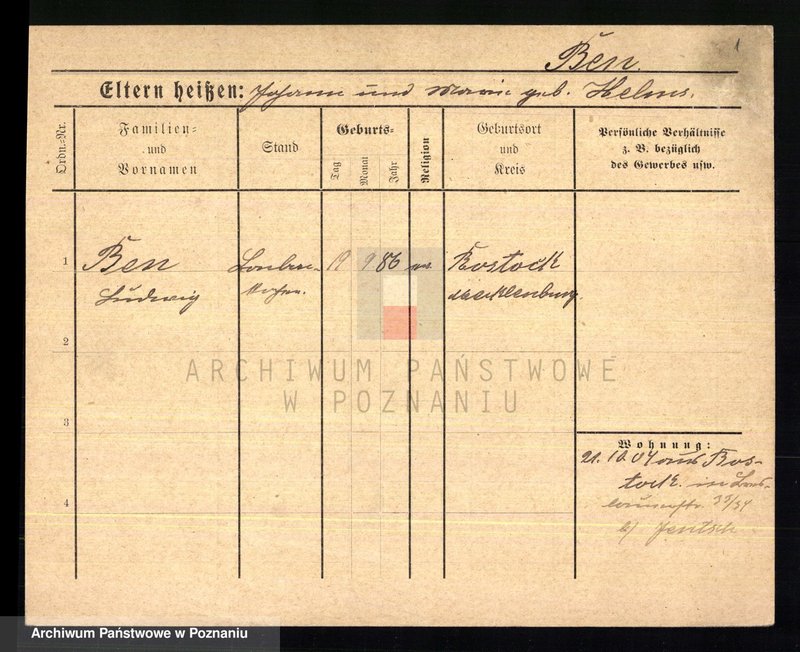 1
Ben.
Eltern heißen: Johann und Marie geb. Helms.
Ordn.-Nr.
Familien-
und
Vornamen
Stand
Geburts-
Tag
Monat
Jahr
Religion
Geburtsort
und
Kreis
Persönliche Verhältnisse
z. B. bezüglich
des Gewerbes usw.
1
Ben
Ludwig
19
9
86
ev.
Rostock
Mecklenburg.
2
3
4
ARCHIWUM PAŃSTWOWE
W POZNANIU
Wohnung:
21. 10. 04 aus Ros-
tock. in
33/34
b/ Jentsch
Archiwum Państwowe w Poznaniu